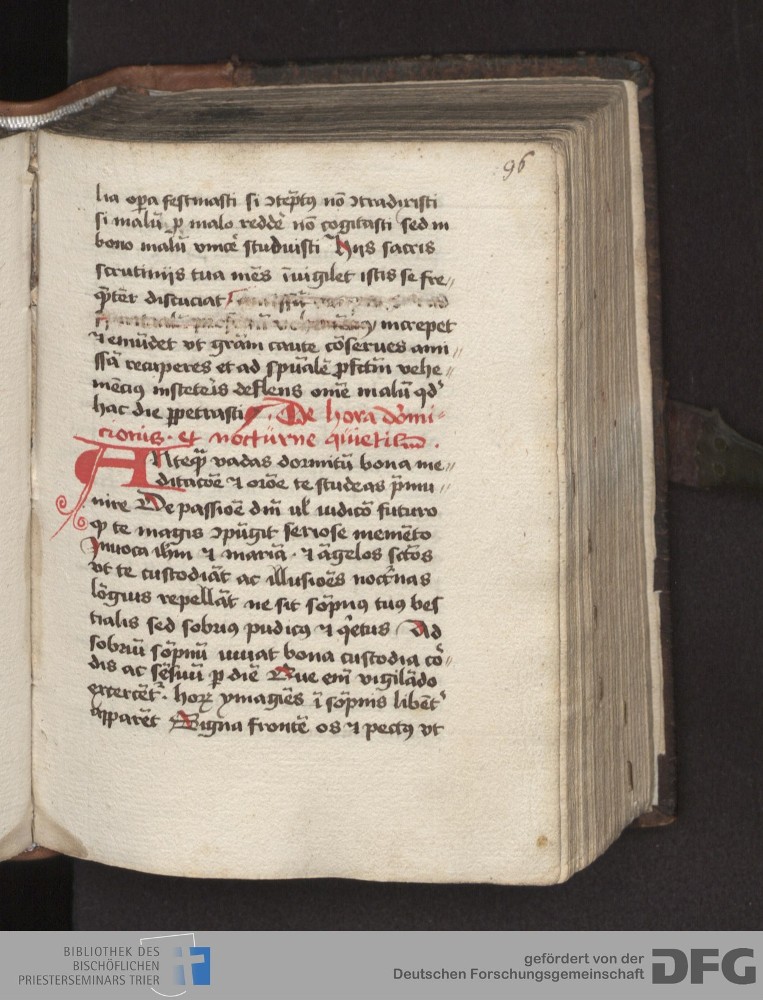 96
lia oꝑa festinasti si ↄtēptꝰ nō ↄtradixisti
si malū ꝓ malo reddē nō cogitasti sed in
bono malū vincē studuisti Hiis sacris
scrutinijs tua mēs īuigilet istis se fre〃
q̄tēr discuciat increpet
⁊ emūdet vt grām caute cōserues ami〃
ssā recuperes et ad spūalē ꝓfctm̄ vehe〃
mēciꝰ insteteris deflens om̄e malū qd'
hac die ꝑpetrasti De hora dormi〃
cionis · et nocturne quietis ·
Anteq̄ȝ vadas dormitū bona me〃
ditacōe ⁊ orōe te studeas p̄mu〃
nire De passiōe dm̄ ul' iudicō futuro
q̄ te magis ↄpūgit seriose memēto
Inuoca ihm̄ ⁊ mariā · ⁊ āgelos sctōs
vt te custodiāt ac illusiōes noct'nas
lōgius repellāt ne sit sōpnꝰ tuꝰ bes
tialis sed sobriꝰ pudicꝰ ⁊ q'etus Ad
sobriū sōpnū iuuat bona custodia cō〃
dis ac sēsuū ꝑ diē Que em̄ vigilādo
exercēt'. horꝝ ymagiēs ī sōpnis libēt'
apparēt Signa frontē os ⁊ pectꝰ vt
BIBLIOTHEK DES
BISCHÖFLICHEN
PRIESTERSEMINARS TRIER
gefördert von der
Deutschen Forschungsgemeinschaft
DFG